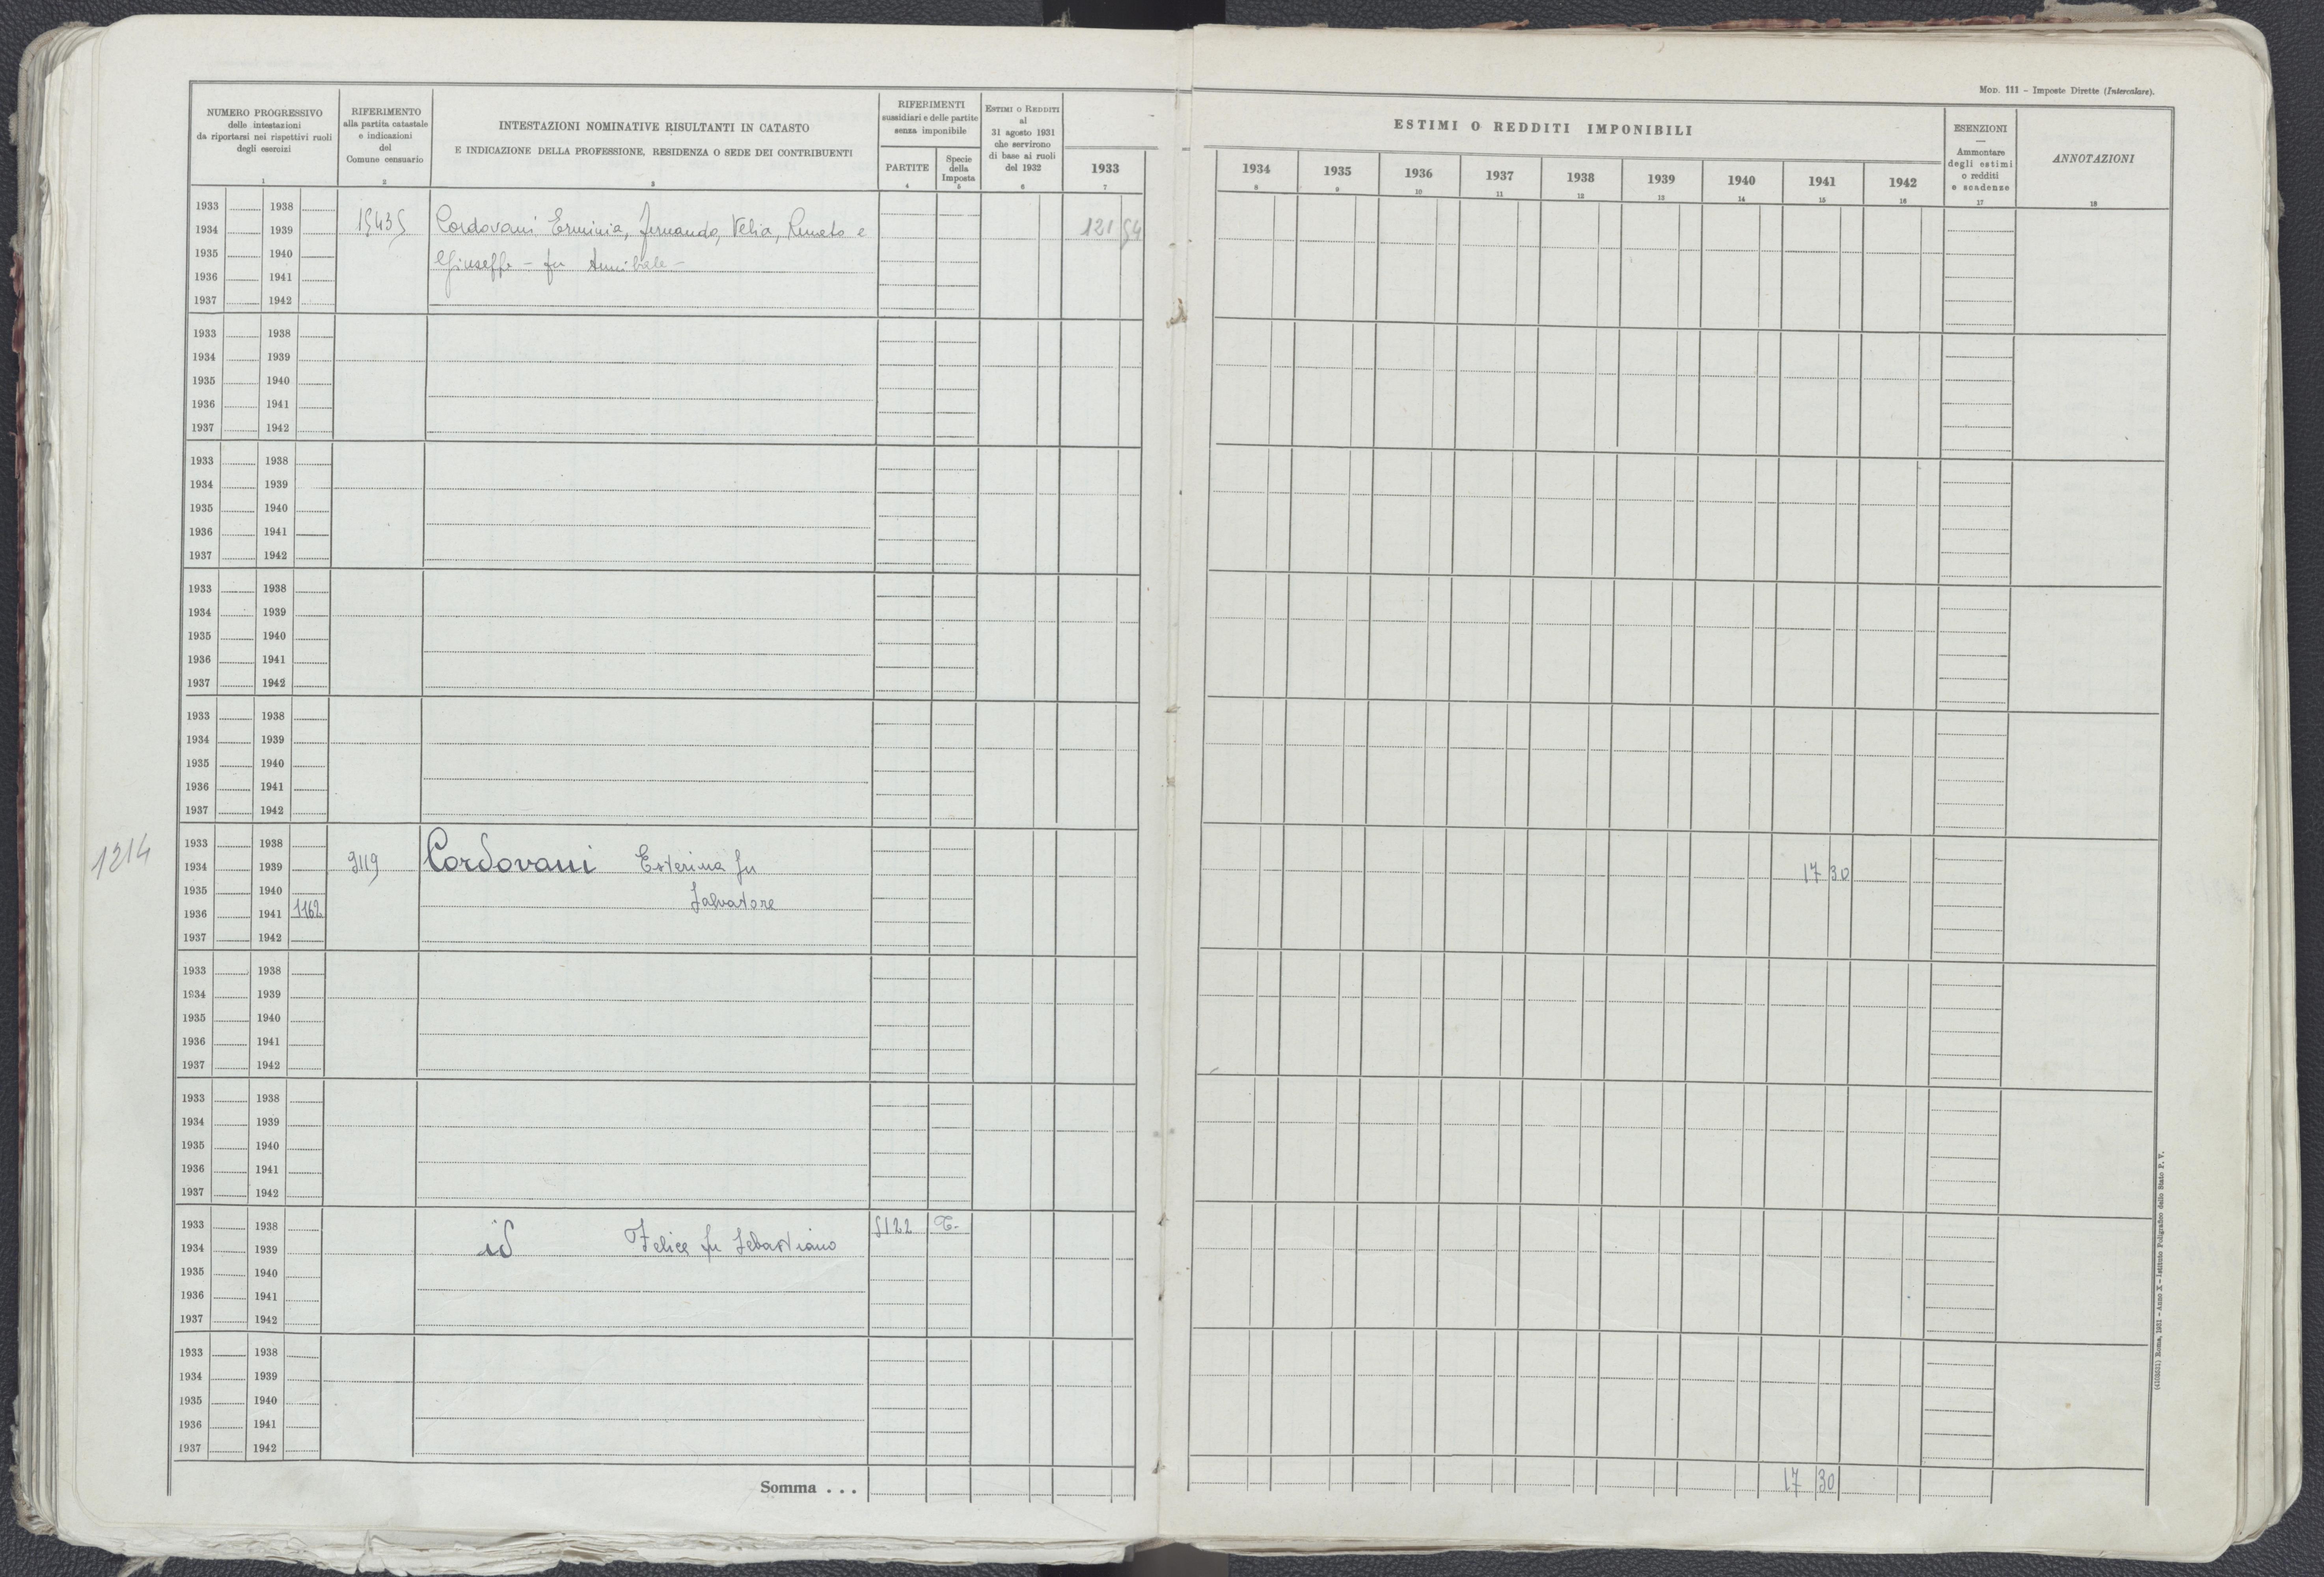 MOD. 111 – Imposte Dirette (Intercalare).
NUMERO PROGRESSIVO
delle intestazioni
da riportarsi nei rispettivi ruoli
degli esercizi
1
RIFERIMENTO
alla partita catastale
e indicazioni
del
Comune censuario
2
INTESTAZIONI NOMINATIVE RISULTANTI IN CATASTO
E INDICAZIONE DELLA PROFESSIONE, RESIDENZA O SEDE DEI CONTRIBUENTI
3
RIFERIMENTI
sussidiari e delle partite
senza imponibile
PARTITE
4
Specie
della
Imposta
5
ESTIMI O REDDITI
al
31 agosto 1931
che servirono
di base ai ruoli
del 1932
6
1933
7
ESTIMI O REDDITI IMPONIBILI
1934 1935 1936 1937 1938 1939 1940 1941 1942
8 9 10 11 12 13 14 15 16
ESENZIONI
—
Ammontare
degli estimi
o redditi
e scadenze
17
ANNOTAZIONI
18
1933 1938
1934 1939 15435 Cordovani Erminia, Fernando, Velia, Renato e 121 54
1935 1940 Giuseppe - fu Annibale -
1936 1941
1937 1942
1933 1938
1934 1939
1935 1940
1936 1941
1937 1942
1933 1938
1934 1939
1935 1940
1936 1941
1937 1942
1933 1938
1934 1939
1935 1940
1936 1941
1937 1942
1933 1938
1934 1939
1935 1940
1936 1941
1937 1942
1214
1933 1938
1934 1939 3119 Cordovani Esterina fu 17 30
1935 1940 Salvatore
1936 1941 1162
1937 1942
1933 1938
1934 1939
1935 1940
1936 1941
1937 1942
1933 1938
1934 1939
1935 1940
1936 1941
1937 1942
1933 1938 5122 T.
1934 1939 id Felice fu Sebastiano
1935 1940
1936 1941
1937 1942
1933 1938
1934 1939
1935 1940
1936 1941
1937 1942
Somma . . . 17 30
Roma, 1931 – Anno X – Istituto Poligrafico dello Stato P. V.